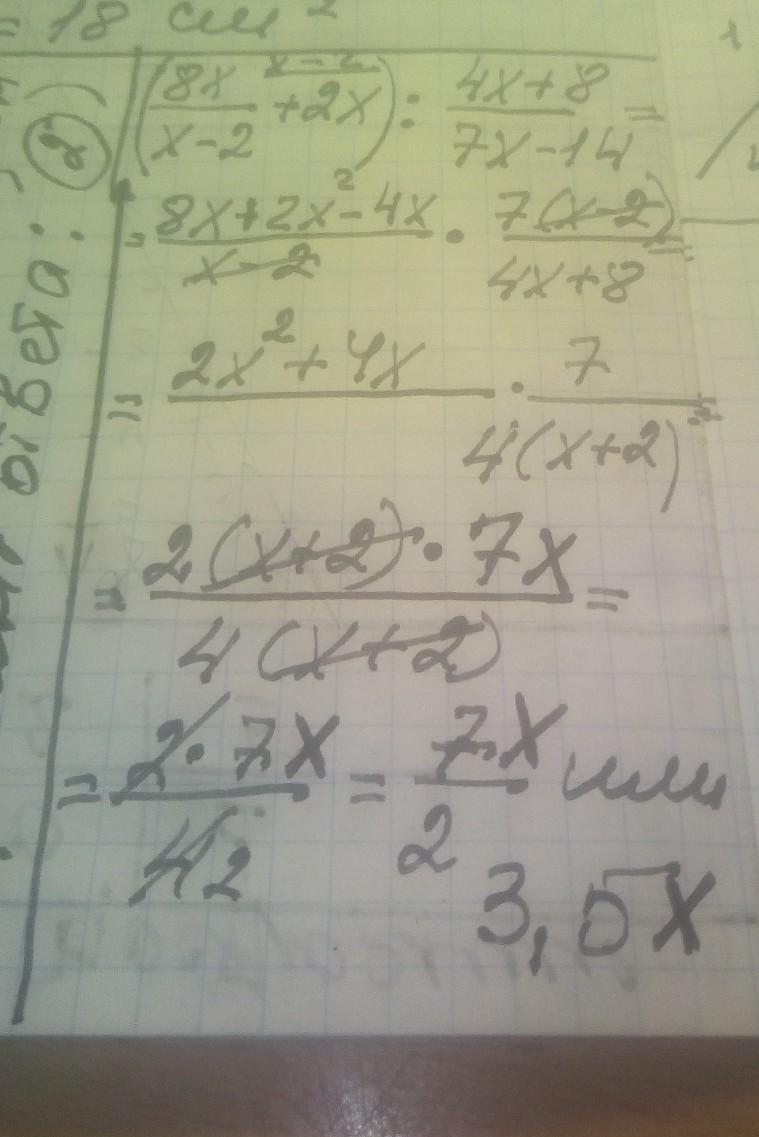 = 18 см²
2) (8x/(x-2) + 2x^(x-2)) : (4x+8)/(7x-14) =
= (8x+2x²-4x)/(x-2) · 7(x-2)/(4x+8) =
= (2x²+4x)/ · 7/(4(x+2)) =
= (2(x+2)·7x)/(4(x+2)) =
= (2·7x)/(4 2) = 7x/2 или
3,5x
ответа: